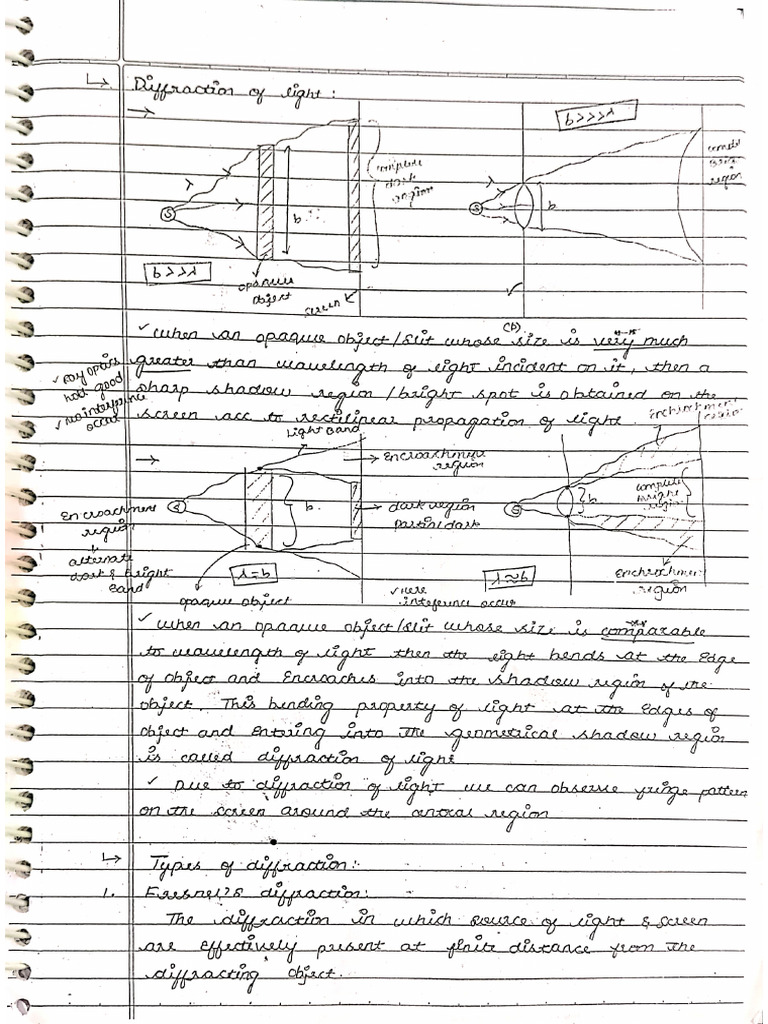 ↳ Diffraction of light:
→
b>>>>λ
λ
λ
S
b
complete
dark
region
S
b
b>>>λ
opaque
object
screen
region
(b)
✓ when an opaque object/slit whose size is very much
✓ ray optics
hold good
greater than wavelength of light incident on it, then a
✓ no interference
occur
sharp shadow region/bright spot is obtained on the
screen acc to rectilinear propagation of light.
Light Band
Enchroachment
region
→
→ Encroachment
region
Encroachment
region
S
b
→ dark region
partial dark
S
b
complete
bright
region
alternate
dark & Bright
Band
λ=b
λ≈b
opaque object
✓ Here
inteference occur
Enchrochment
region
✓ when an opaque object/slit whose size is comparable
to wavelength of light then the light bends at the Edge
of object and Encroaches into the shadow region of the
object. This bending property of light at the Edges of
object and Entering into the geometrical shadow region
is called diffraction of light.
✓ Due to diffraction of light we can observe fringe pattern
on the screen around the central region
↳ Types of diffraction:
1. Fresnel's diffraction:
The diffraction in which source of light & screen
are effectively present at finite distance from the
diffracting object.